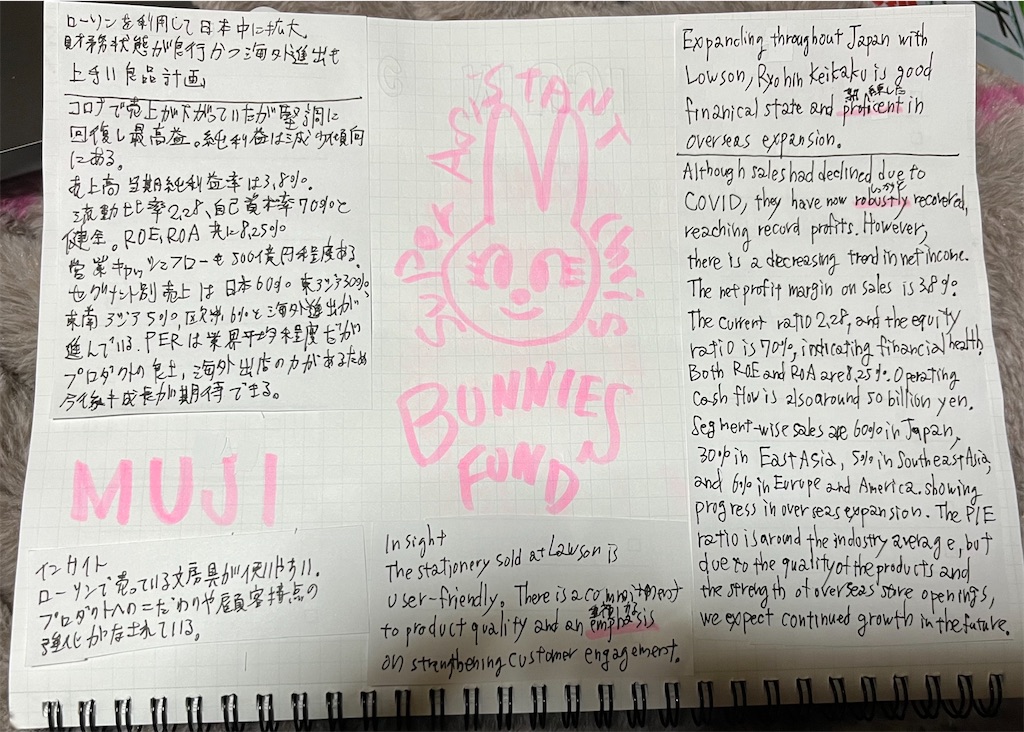 ローソンを利用して日本中に拡大
財務状態が良行かつ海外進出も
上手い良品計画」
コロナで売上が下がっていたが堅調に
回復し最高益。純利益は減少傾向
にある。
売上高当期純利益率は3.8%。
流動比率2.28、自己資本率70%と
健全。ROE,ROA 共に8.25%
営業キャッシュフローも500億円程度ある。
セグメント別売上は日本60%東アジア30%、
東南アジア5%、欧米6%と海外進出が、
進んでいる。PERは業界平均程度だが
プロダクトの良さ、海外出店の力があるため
今後も成長が期待できる。
MUJI
インサイト
ローソンで売っている文房具が使いやすい。
プロダクトへのこだわりや顧客接点の
強化がなされている。
Super Asistant Chiis
BUNNIES
FUND
Insight
The stationery sold at Lawson is
user-friendly. There is a commitment
to product quality and an emphasis
on strengthening customer engagement.
Expanding throughout Japan with
Lowson, Ryohin Keikaku is good
finanical state and proficent in
熟練した
overseas expansion.
Although sales had declined due to
COVID, they have now robustly recovered,
reaching record profits. However,
there is a decreasing trend in net income.
The net profit margin on sales is 3.8%.
The current ratio 2,28, and the equity
ratio is 70%, indicating financial health.
Both ROE and ROA are 8,25%. Operating
Cash flow is also around 50 billion yen.
Segment-wise sales are 60% in Japan,
30% in East Asia, 5% in Southeast Asia,
and 6% in Europe and America. showing
progress in overseas expansion. The P/E
ratio is around the industry average, but
due to the quality of the products and
the strength of overseas store openings,
we expect continued growth in the future.